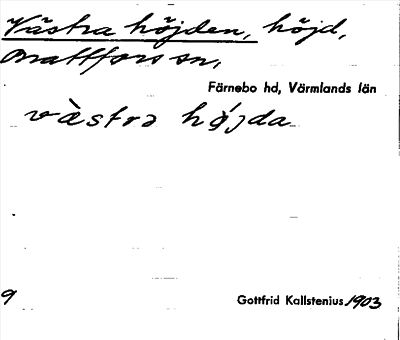 Västra höjden, höjd,
Brattfors sn,
Färnebo hd, Värmlands län
vàstrə hø̀jda
9
Gottfrid Kallstenius 1903